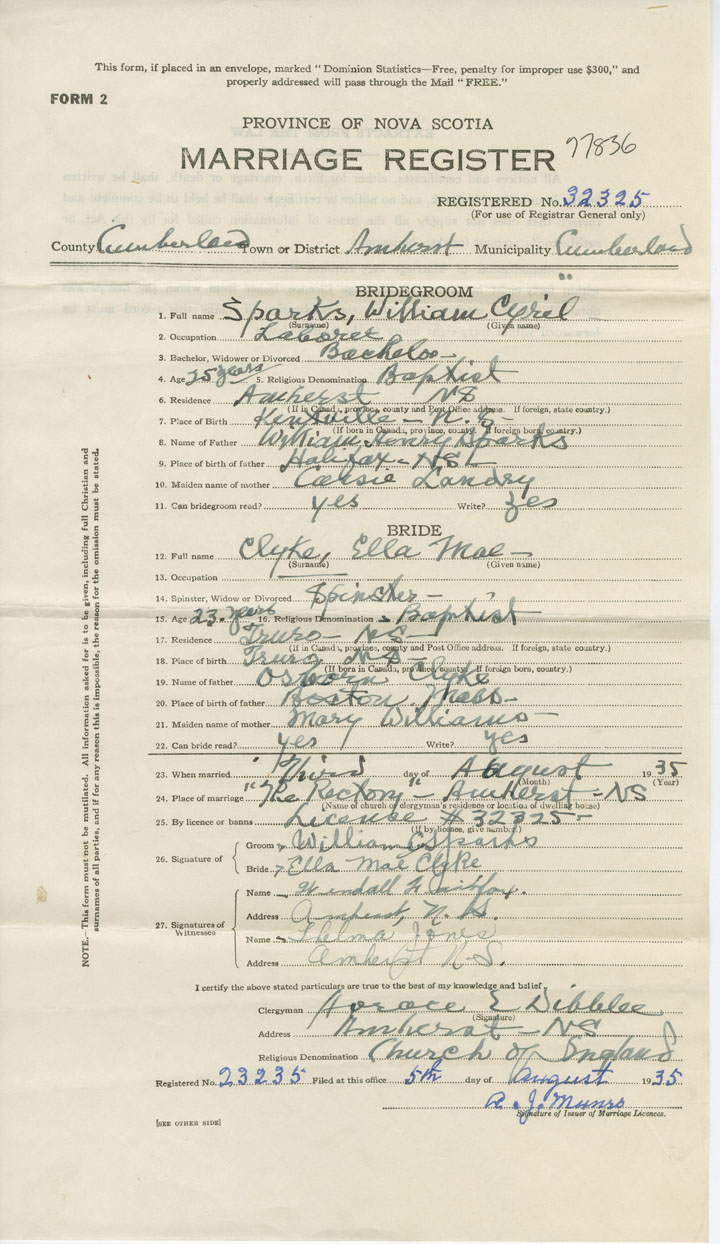 This form, if placed in an envelope, marked " Dominion Statistics—Free, penalty for improper use $300," and
properly addressed will pass through the Mail "FREE."
FORM 2
PROVINCE OF NOVA SCOTIA
MARRIAGE REGISTER 77836
REGISTERED No. 32325
(For use of Registrar General only)
County Cumberland Town or District Amherst Municipality Cumberland
BRIDEGROOM
1. Full name Sparks, William Cyril
(Surname) (Given name)
2. Occupation Laborer
3. Bachelor, Widower or Divorced Bachelor
4. Age 25 years 5. Religious Denomination Baptist
6. Residence Amherst NS
(If in Canada, province, county and Post Office address. If foreign, state country.)
7. Place of Birth Kentville - N.S-
(If born in Canada, province, county. If foreign born, country.)
8. Name of Father William Henry Sparks
9. Place of birth of father Halifax - NS
10. Maiden name of mother Landry
11. Can bridegroom read? yes Write? yes
BRIDE
12. Full name Clyke, Ella Mae -
(Surname) (Given name)
13. Occupation
14. Spinster, Widow or Divorced Spinster -
15. Age 23 years 16. Religious Denomination - Baptist
17. Residence Truro - NS -
(If in Canada, province, county and Post Office address. If foreign, state country.)
18. Place of birth Truro NS -
(If born in Canada, province, county. If foreign born, country.)
19. Name of father Osborn Clyke
20. Place of birth of father Boston Mass-
21. Maiden name of mother Mary Williams -
22. Can bride read? yes Write? yes
23. When married Third day of August 1935
(Month) (Year)
24. Place of marriage "The Rectory" - Amherst - NS
(Name of church or clergyman's residence or location of dwelling house)
25. By licence or banns License #32325-
(If by licence, give number.)
26. Signature of
Groom William C Sparks
Bride Ella Mae Clyke
27. Signatures of Witnesses
Name
Address Amherst, N.S.
Name Thelma Jones
Address Amherst N-S.
I certify the above stated particulars are true to the best of my knowledge and belief
Clergyman Horace E Dibblee
(Signature)
Address Amherst - NS
Religious Denomination Church of England
Registered No. 23235 Filed at this office 5th day of August 1935
A. J. Munro
Signature of Issuer of Marriage Licences.
[SEE OTHER SIDE]
NOTE.—This form must not be mutilated. All information asked for is to be given, including full Christian and
surnames of all parties, and if for any reason this is impossible, the reason for the omission must be stated.